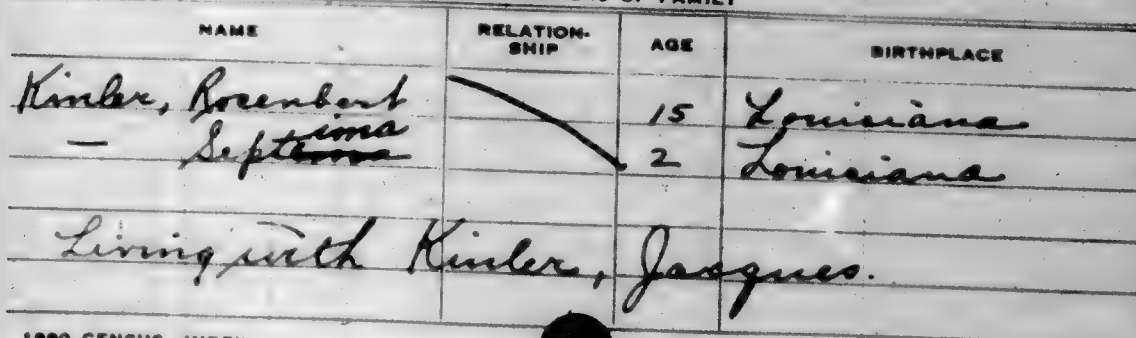 OF FAMILY
NAME RELATION-SHIP AGE BIRTHPLACE
Kinler, Rosenbert 15 Louisiana
— Septima 2 Louisiana
Living with Kinler, Jacques.
1880 CENSUS INDEX